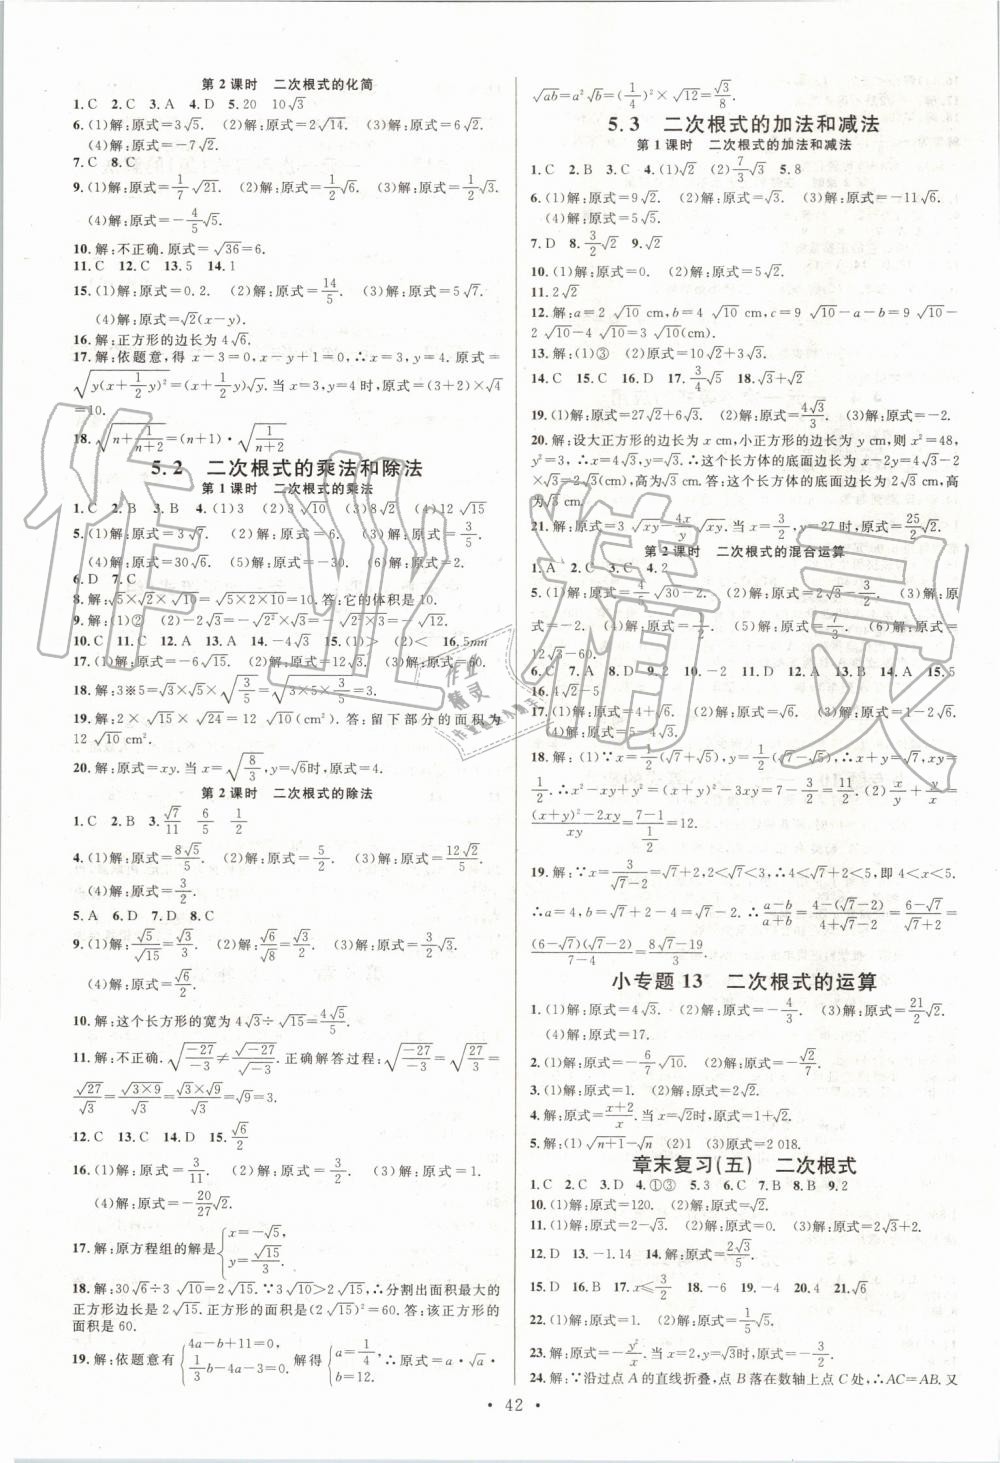 第 2 课时　二次根式的化简
1. C　2. C　3. A　4. D　5. 20　10√3
6. (1)解:原式=3√5.　(2)解:原式=2√14.　(3)解:原式=6√2.
(4)解:原式=-7√2.
7. C　8. C
9. (1)解:原式=1/7√21.　(2)解:原式=1/2√6.　(3)解:原式=1/2√3.
(4)解:原式=-4/5√5.
10. 解:不正确.原式=√36=6.
11. C　12. C　13. 5　14. 1
15. (1)解:原式=0.2.　(2)解:原式=14/5.　(3)解:原式=5√7.
(4)解:原式=√2(x-y).
16. 解:正方形的边长为 4√6.
17. 解:依题意,得 x-3=0,x-y+1=0,∴x=3,y=4.原式=
√(y(x+1/2 y)²)=(x+1/2 y)√y.当 x=3,y=4 时,原式=(3+2)×√4
=10.
18. √(n+1/(n+2))=(n+1)·√(1/(n+2))
5.2　二次根式的乘法和除法
第 1 课时　二次根式的乘法
1. C　2. B　3. B　4. (1)3　(2)3√10　(3)8√2　(4)12√15
5. (1)解:原式=7√6.　(2)解:原式=30√3.　(3)解:原式=3/5.
(4)解:原式=30√6.　(5)解:原式=-30.　(6)解:原式=√2.
6. D　7. C
8. 解:√5×√2×√10=√(5×2×10)=10.答:它的体积是 10.
9. 解:(1)②　(2)-2√3=-√(2²×3)=-√12.
10. C　11. C　12. A　13. A　14. -4√3　15. (1)>　(2)<　16. 5mn
17. (1)解:原式=15√6.　(2)解:原式=12√3.　(3)解:原式=60.
18. 解:3※5=√3×√5×√(3/5)=√(3×5×3/5)=3.
19. 解:2×√15×√24=12√10(cm²).答:留下部分的面积为
12√10 cm².
20. 解:原式=xy.当 x=√(8/3),y=√6时,原式=4.
第 2 课时　二次根式的除法
1. C　2. B　3. √7/11　6/5　1/2
4. (1)解:原式=8√5/5.　(2)解:原式=5/2.　(3)解:原式=12√2/5.
(4)解:原式=3/2.
5. A　6. D　7. D　8. C
9. (1)解:√5/√15=√3/3.　(2)解:√6/√8=√3/2.　(3)解:原式=2/3√3.
(4)解:原式=√6/2.
10. 解:这个长方形的宽为 4√3÷√15=4√5/5.
11. 解:不正确.√(-27/-3)≠√-27/√-3.正确解答过程:√(-27/-3)=√(27/3)=
√27/√3=√(3×9)/√3=√3×√9/√3=√9=3.
12. C　13. C　14. D　15. √6/2
16. (1)解:原式=3/11.　(2)解:原式=4/5.　(3)解:原式=3√2.
(4)解:原式=-20/27√2.
17. 解:原方程组的解是{x=-√5, y=√15/3.
18. 解:30√6÷3√10=2√15.∵3√10>2√15,∴分割出面积最大的
正方形边长是 2√15.正方形的面积是(2√15)²=60.答:该正方形的
面积是 60.
19. 解:依题意有{4a-b+11=0, 1/3 b-4a-3=0.　解得{a=1/4, b=12.　∴原式=a·√a·
√ab=a²√b=(1/4)²×√12=√3/8.
5.3　二次根式的加法和减法
第 1 课时　二次根式的加法和减法
1. C　2. B　3. C　4. (1)√2　(2)7/3√3　5. 8
6. (1)解:原式=9√2.　(2)解:原式=√3.　(3)解:原式=-11√6.
(4)解:原式=5√5.
7. D　8. 3/2√2　9. √2
10. (1)解:原式=2√3.　(2)解:原式=0.　(3)解:原式=5√2.
11. 2√2
12. 解:a=2√10 cm,b=4√10 cm,c=9√10-a-b=9√10-
2√10-4√10=3√10(cm).
13. 解:(1)③　(2)原式=10√2+3√3.
14. C　15. C　16. D　17. 3/4√5　18. √3+√2
19. (1)解:原式=27√2+6√3.　(2)解:原式=4√3/3.　(3)解:原式=-2.
20. 解:设大正方形的边长为 x cm,小正方形的边长为 y cm,则 x²=48,
y²=3.∴x=4√3,y=√3.∴这个长方体的底面边长为 x-2y=4√3-2
√3=2√3(cm),高为√3 cm.答:这个长方体的底面边长为 2√3 cm,
高为√3 cm.
21. 解:原式=3√xy-4x/y√xy.当 x=3/2,y=27 时,原式=25/2√2.
第 2 课时　二次根式的混合运算
1. A　2. C　3. C　4. 2
5. (1)解:原式=√30-2.　(2)解:原式=2√3-3/2.　(3)解:原
式=-2.　(4)解:原式=0.　(5)解:原式=7/3.　(6)解:原式=
12√3-60.
6. C　7. A　8. D　9. C　10. -2　11. C　12. B　13. C　14. A　15. 5
16. 4√5-1
17. (1)解:原式=4+√6.　(2)解:原式=√5.
(4)解:原式=2.
18. 解:(1)∵x=1/2(√7+√5),y=1/2(√7-√5),∴x+y=√7,xy=
1/2.∴x²-xy+y²=(x+y)²-3xy=7-3/2=11/2.　(2)x/y+y/x=
((x+y)²-2xy)/xy=(7-1)/(1/2)=12.
19. 解:∵x=3/(√7-2)=√7+2,2<√7<3,∴4<√7+2<5,即 4<x<5.
∴a=4,b=√7+2-4=√7-2.∴(a-b)/(a+b)=(4-(√7-2))/(4+√7-2)=(6-√7)/(√7+2)=
(6-√7)(√7-2)/(7-4)=(8√7-19)/3.
小专题 13　二次根式的运算
1. (1)解:原式=4√3.　(2)解:原式=-4/3.　(3)解:原式=21/2√3.
(4)解:原式=17.
2. (1)解:原式=-6/7√10.　(2)解:原式=√2/7.
3. (1)解:原式=1.　(2)解:原式=2√2.
4. 解:原式=(x+2)/x.当 x=√2时,原式=1+√2.
5. 解:(1)√(n+1)-√n　(2)1　(3)原式=2 018.
章末复习(五)　二次根式
1. C　2. C　3. D　4. ①③　5. 3　6. C　7. B　8. B　9. 2
10. (1)解:原式=120.　(2)解:原式=2√3.
11. (1)解:原式=2-√3.　(2)解:原式=0.　(3)解:原式=2√3+2.
12. D　13. -1.14　14. 解:原式=2√3/5.
15. D　16. B　17. x≤3/2　18. -6　19. -4　20. 4　21. √6
22. (1)解:原式=1.　(2)解:原式=1/5√5.
23. 解:原式=-y²/x.当 x=√3,y=√3时,原式=-√3.
24. 解:∵沿过点 A 的直线折叠,点 B 落在数轴上点 C 处,∴AC=AB.又
· 42 ·
作业精灵
作业精灵